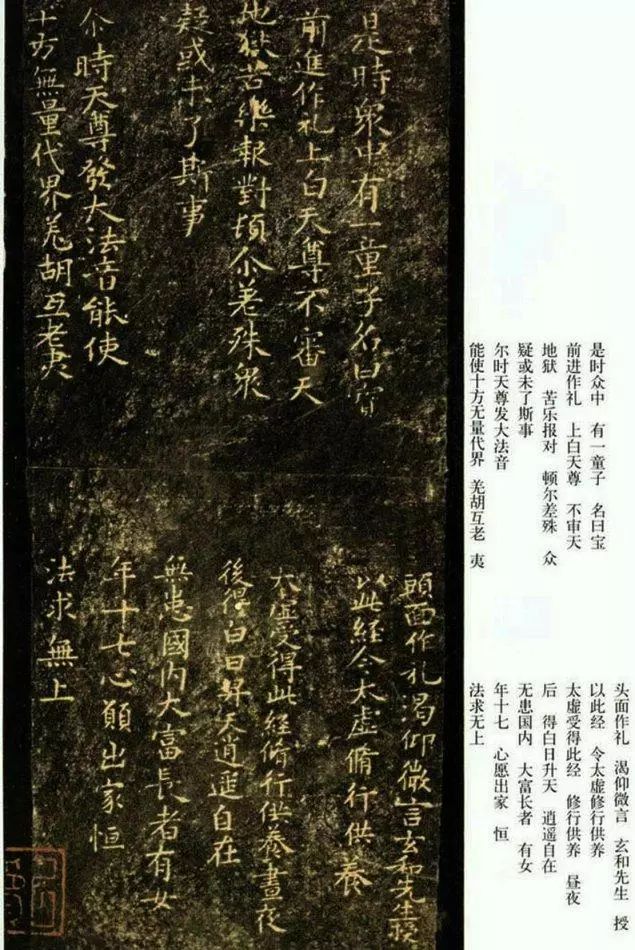 是時眾中有一童子名曰寶
前進作礼上白天尊不審天
地獄苦樂報對頓尒差殊眾
疑或未了斯事
尒時天尊發大法音能使
十方無量代界羌胡互老夷
頭面作礼渴仰微言玄和先生授
以此經令太虛脩行供養
太虛受得此經脩行供養晝夜
後得白日昇天逍遥自在
無患國內大富長者有女
年十七心願出家恒
法求無上
是时众中　有一童子　名曰宝
前进作礼　上白天尊　不审天
地狱　苦乐报对　顿尔差殊　众
疑或未了斯事
尔时天尊发大法音
能使十方无量代界　羌胡互老　夷
头面作礼　渴仰微言　玄和先生　授
以此经　令太虚修行供养
太虚受得此经　修行供养　昼夜
后　得白日升天　逍遥自在
无患国内　大富长者　有女
年十七　心愿出家　恒
法求无上